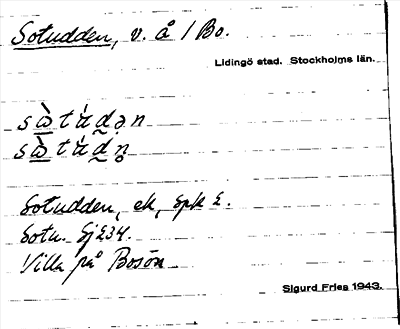 Sotudden, v. å 1 Bo.
Lidingö stad. Stockholms län.
Sotudden, ek, Spk 2.
Sotu. Sj 234.
Villa på Bosön
Sigurd Fries 1943.